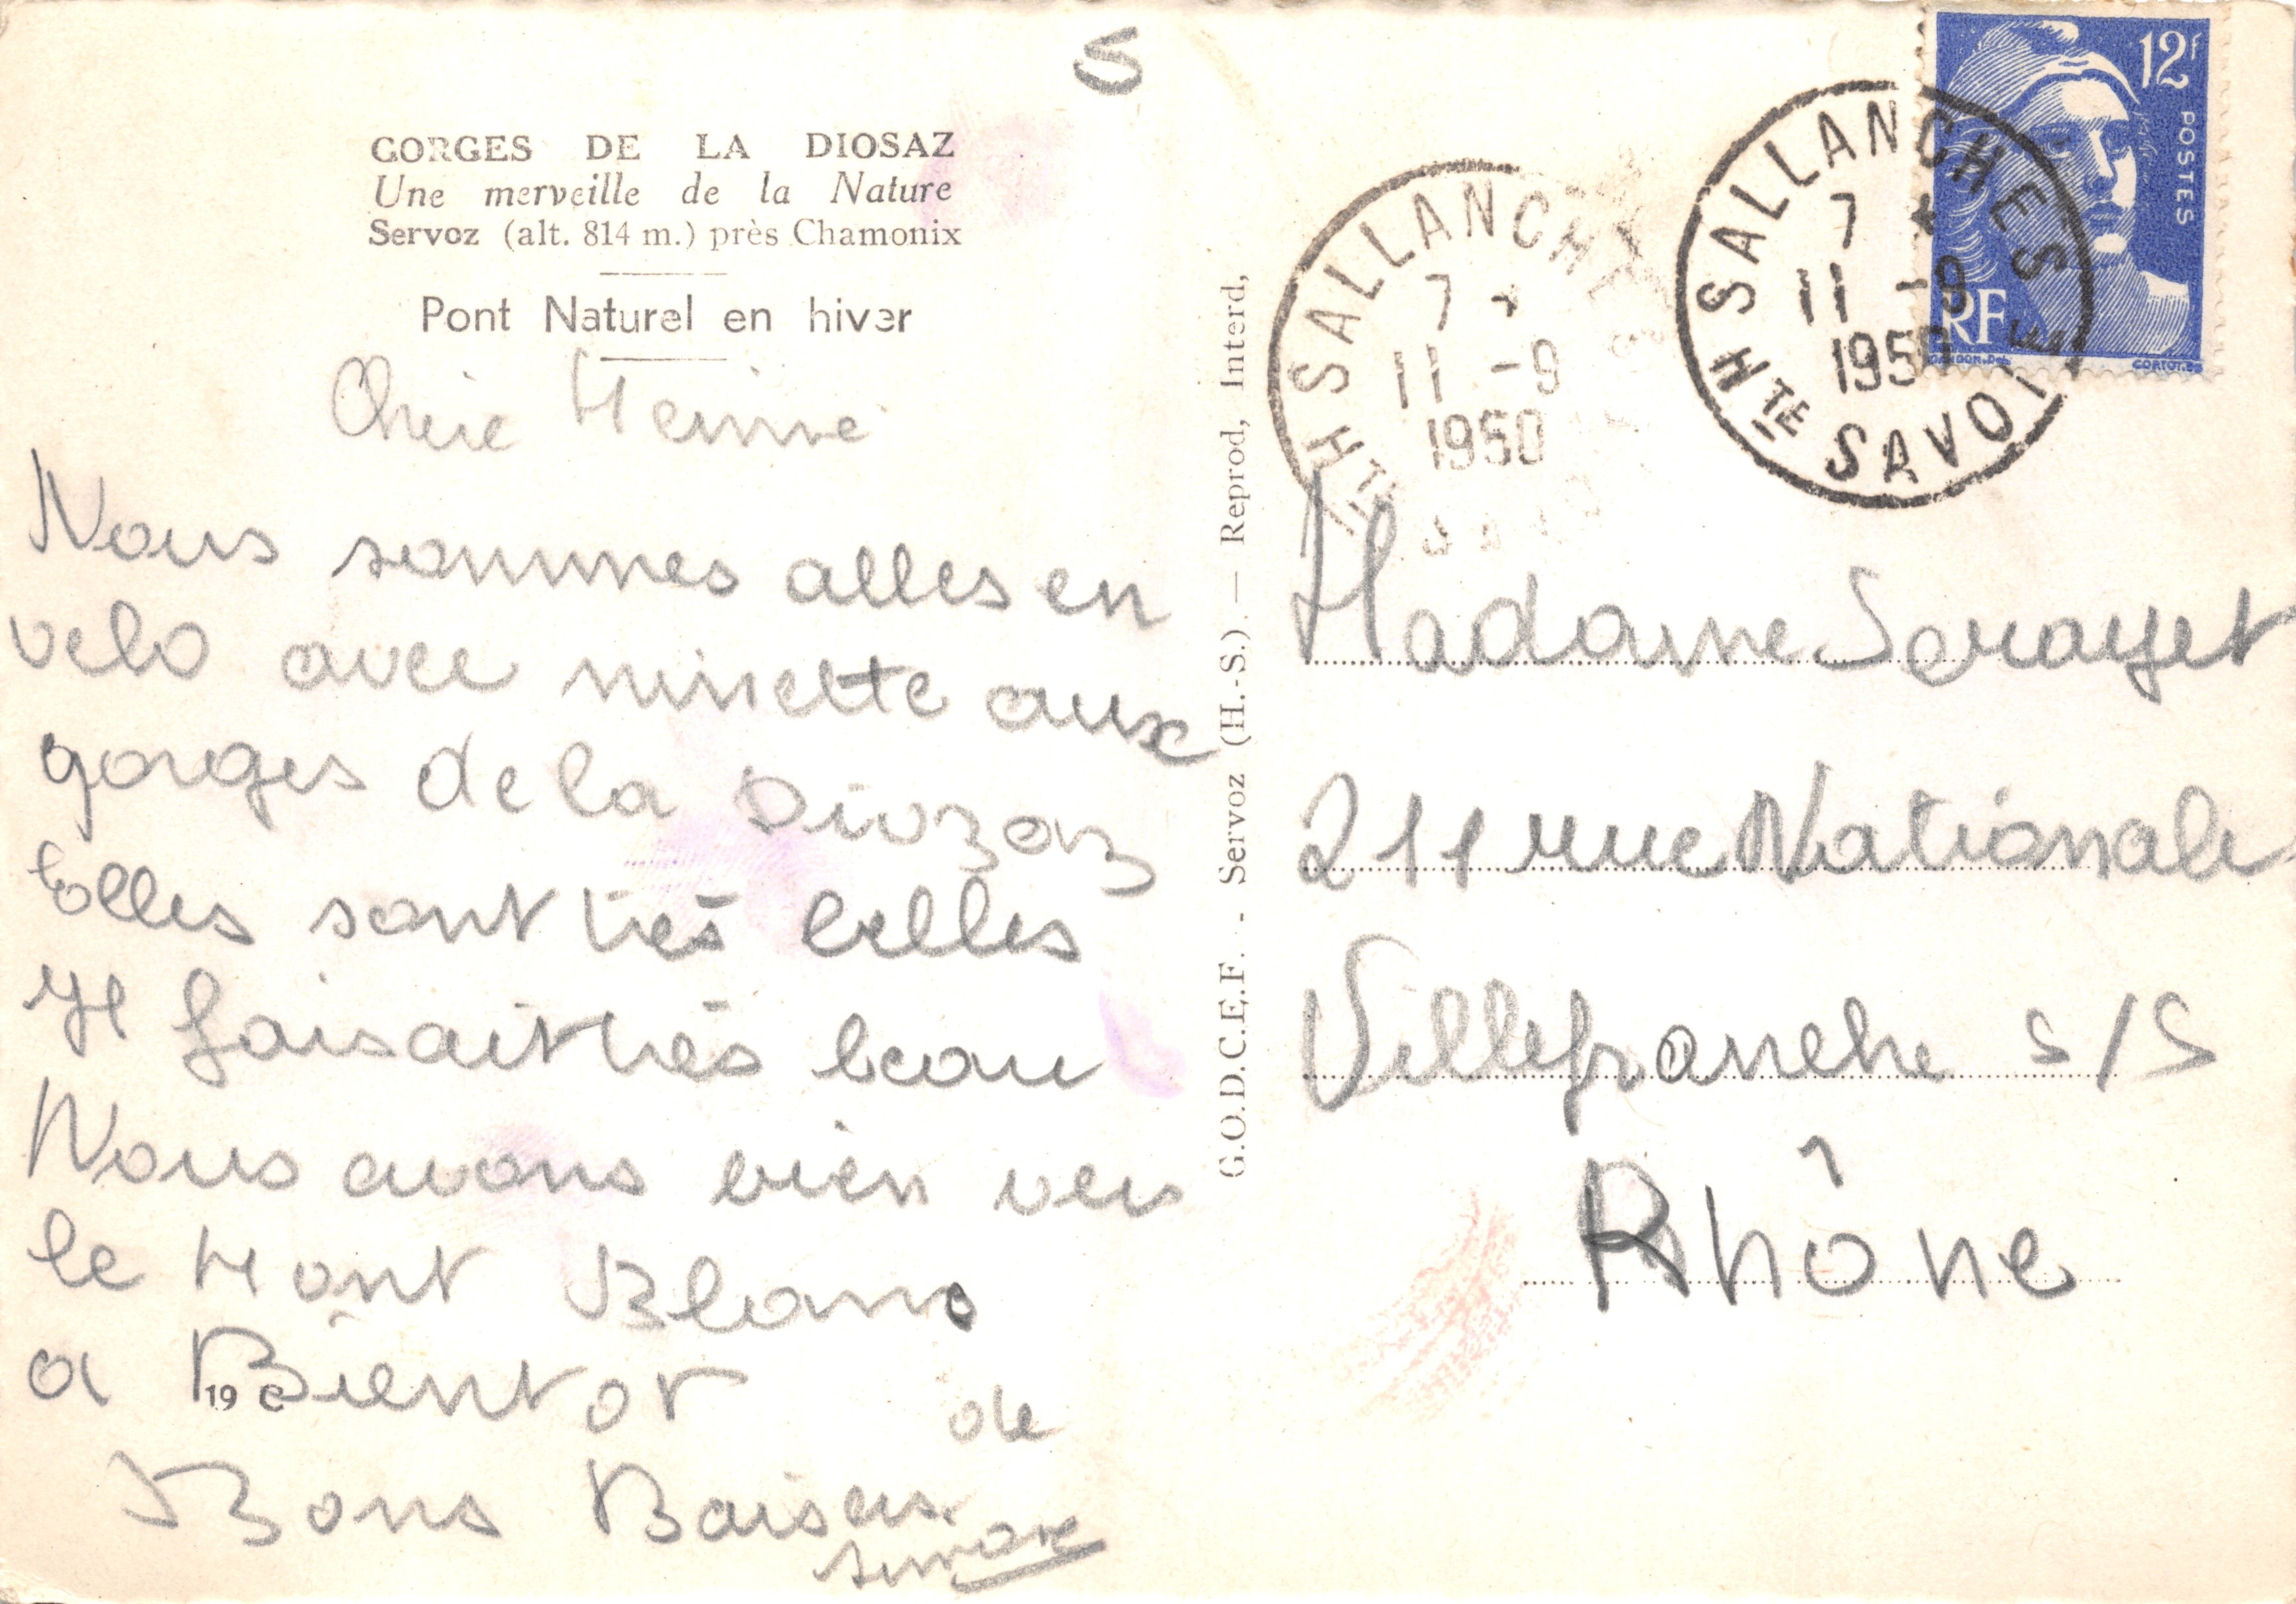 S
GORGES DE LA DIOSAZ
Une merveille de la Nature
Servoz (alt. 814 m.) près Chamonix
Pont Naturel en hiver
Chere
Nous sommes alles en
velo avec ninette aux
gorges de la Diozaz
Elles sont très belles
Il faisait très beau
Nous avons bien vu
le Mont Blanc
a Bientot de
19
Bons Baisers
simone
G.O.D.C.E.F. - Servoz (H.-S.). — Reprod, Interd,
SALLANCHES
7 *
11 -9
1950
HTE SAVOIE
SALLANCHE
7 *
11 -9
1950
HTE
12f
POSTES
RF
GANDON.Del
CORTOT.SC
Madame
211 rue Nationale
Villefranche s/S
Rhône